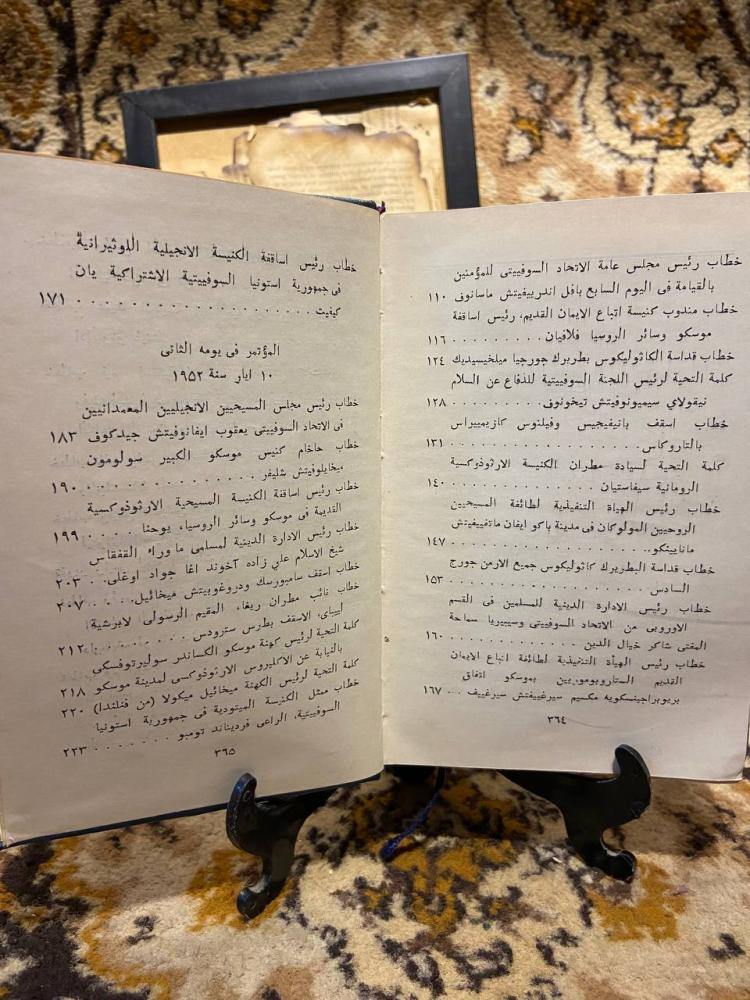 خطاب رئيس مجلس عامة الاتحاد السوفييتى للمؤمنين
بالقيامة فى اليوم السابع بافل اندرييفيتش ماسانوف ١١٠
خطاب مندوب كنيسة اتباع الايمان القديم، رئيس اساقفة
موسكو وسائر الروسيا فلافيان . . . . . . . . . ١١٦
خطاب قداسة الكاثوليكوس بطريرك جورجيا ميلخيسيديك ١٢٤
كلمة التحية لرئيس اللجنة السوفييتية للدفاع عن السلام
نيقولاي سيميونوفيتش تيخونوف. . . . . . . . . ١٢٨
خطاب اسقف بانيفيجيس وفيلنوس كازيميراس
بالتاروكاس. . . . . . . . . . . . . . . . . ١٣١
كلمة التحية لسيادة مطران الكنيسة الارثوذوكسية
الرومانية سيفاستيان . . . . . . . . . . . . . ١٤٠
خطاب رئيس الهيأة التنفيذية لطائفة المسيحيين
الروحيين المولوكان فى مدينة باكو ايفان ماتفييفيتش
. . . . . . . . . . . . . . . . ١٤٧
خطاب قداسة البطريرك كاثوليكوس جميع الارمن جورج
السادس . . . . . . . . . . . . . . . . . . . ١٥٣
خطاب رئيس الادارة الدينية للمسلمين فى القسم
الاوروبى من الاتحاد السوفييتى وسيبيريا سماحة
المفتى شاكر خيال الدين . . . . . . . . . . . . ١٦٠
خطاب رئيس الهيأة التنفيذية لطائفة اتباع الايمان
القديم الستاروبوموريين بموسكو اتفاق
بريوبراجينسكويه مكسيم سيرغييفتش سيرغييف . . . ١٦٧
٣٦٤
خطاب رئيس اساقفة الكنيسة الانجيلية اللوثيرانية
فى جمهورية استونيا السوفييتية الاشتراكية يان
كيفيت . . . . . . . . . . . . . . . . . . . . ١٧١
المؤتمر فى يومه الثانى
١٠ ايار سنة ١٩٥٢
خطاب رئيس مجلس المسيحيين الانجيليين المعمدانيين
فى الاتحاد السوفييتى يعقوب ايفانوفيتش جيدكوف ١٨٣
خطاب حاخام كنيس موسكو الكبير سولومون
ميخايلوفيتش شليفر . . . . . . . . . . . . . . ١٩٠
خطاب رئيس اساقفة الكنيسة المسيحية الارثوذوكسية
القديمة فى موسكو وسائر الروسيا، يوحنا . . . . . ١٩٩
خطاب رئيس الادارة الدينية لمسلمى ما وراء القفقاس
شيخ الاسلام علي زاده آخوند اغا جواد اوغلى. . . ٢٠٣
خطاب اسقف سامبورسك ودروغوبيتش ميخائيل. . . . ٢٠٧
خطاب نائب مطران ريغا، المقيم الرسولى لابرشية
ليبايى، الاسقف بطرس سترودس . . . . . . . . . ٢١٢
كلمة التحية لرئيس كهنة موسكو الكساندر سوليرتوفسكى
بالنيابة عن الاكليروس الارثوذوكسى لمدينة موسكو ٢١٨
كلمة التحية لرئيس الكهنة ميخائيل ميكولا (من فنلندا) ٢٢٠
خطاب ممثل الكنيسة الميتودية فى جمهورية استونيا
السوفييتية، الراعى فرديناند تومبو . . . . . . . ٢٢٣
٣٦٥